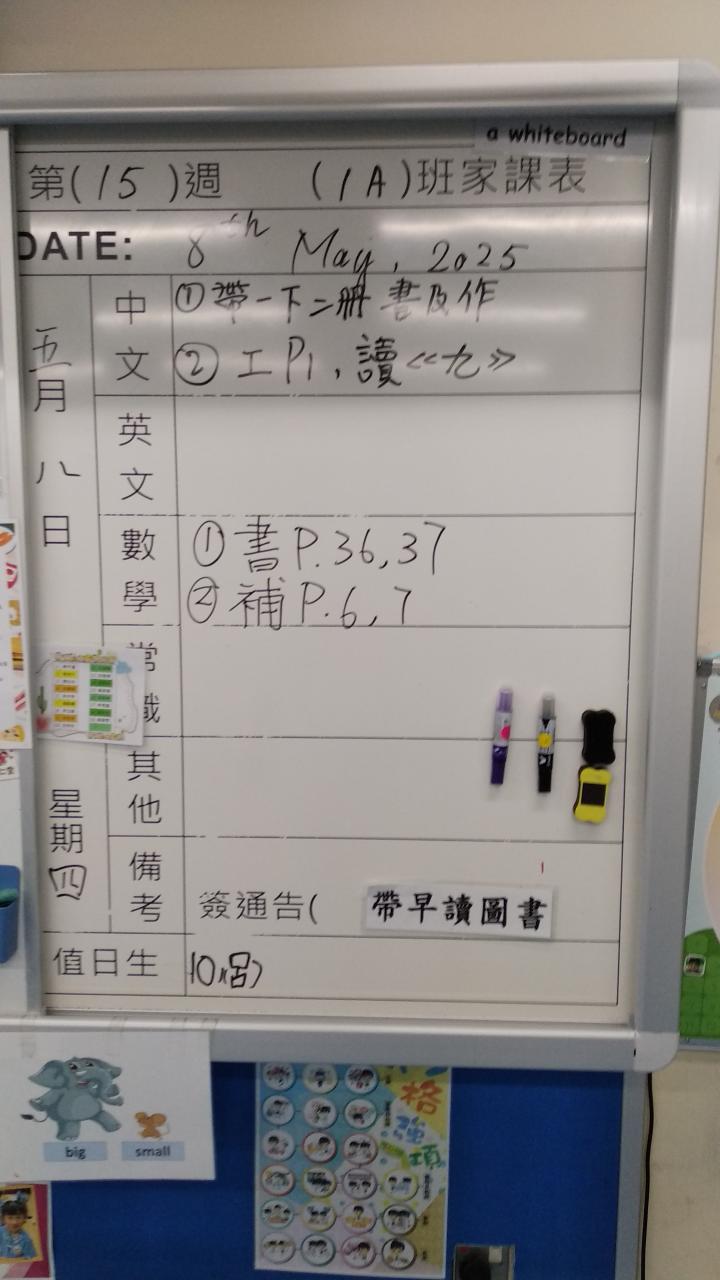 a whiteboard
第(15)週 (1A)班家課表
DATE: 8th May, 2025
五月八日
星期四
中文
①帶一下二冊書及作
②工P1,讀《九》
英文
數學
①書P.36,37
②補P.6,7
常識
其他
備考
簽通告( 帶早讀圖書
值日生 10,呂
big
small
格
強
項